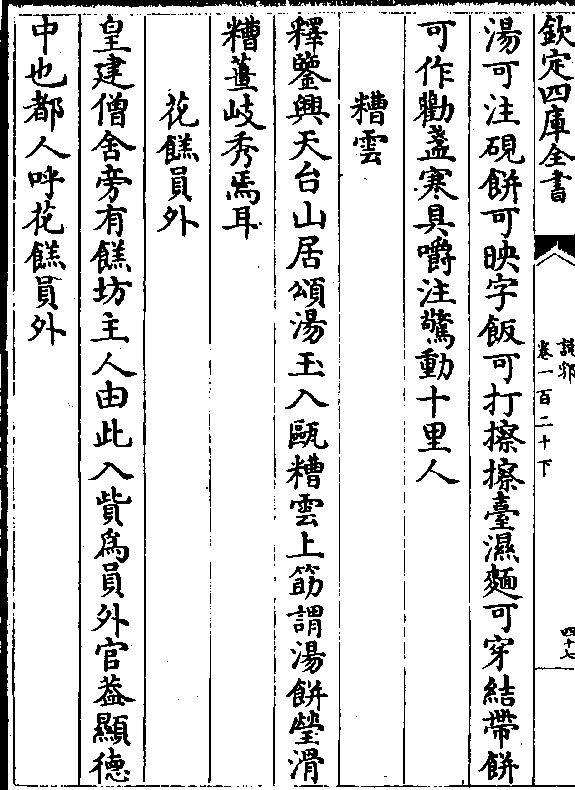 欽定四庫全書
說郛
卷一百二十下
四十七
湯可注硯餅可映字飯可打擦擦臺濕麵可穿結帶餅
可作勸盞寒具嚼注驚動十里人
糟雲
釋鑒興天台山居頌湯玉入甌糟雲上筯謂湯餅瑩滑
糟薑岐秀焉耳
花餻員外
皇建僧舍旁有餻坊主人由此入貲為員外官葢顯德
中也都人呼花餻員外